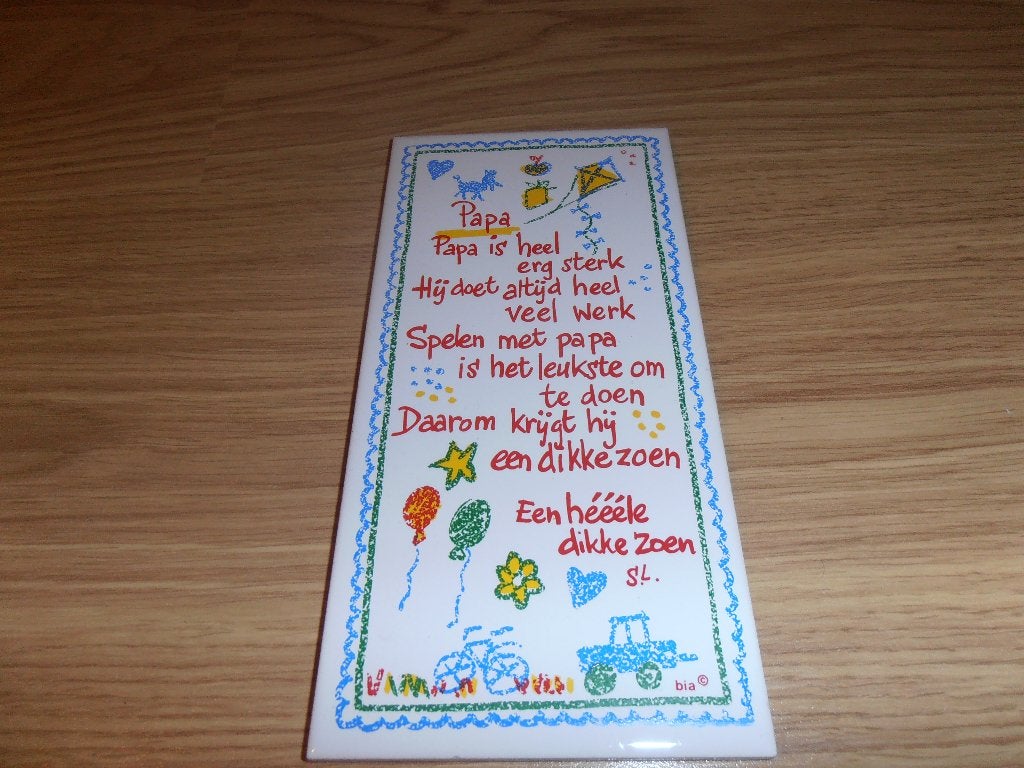 Papa
Papa is heel
erg sterk
Hij doet altijd heel
veel werk
Spelen met papa
is het leukste om
te doen
Daarom krijgt hij
een dikke zoen
Een hééële
dikke zoen
S.L.
bia ©